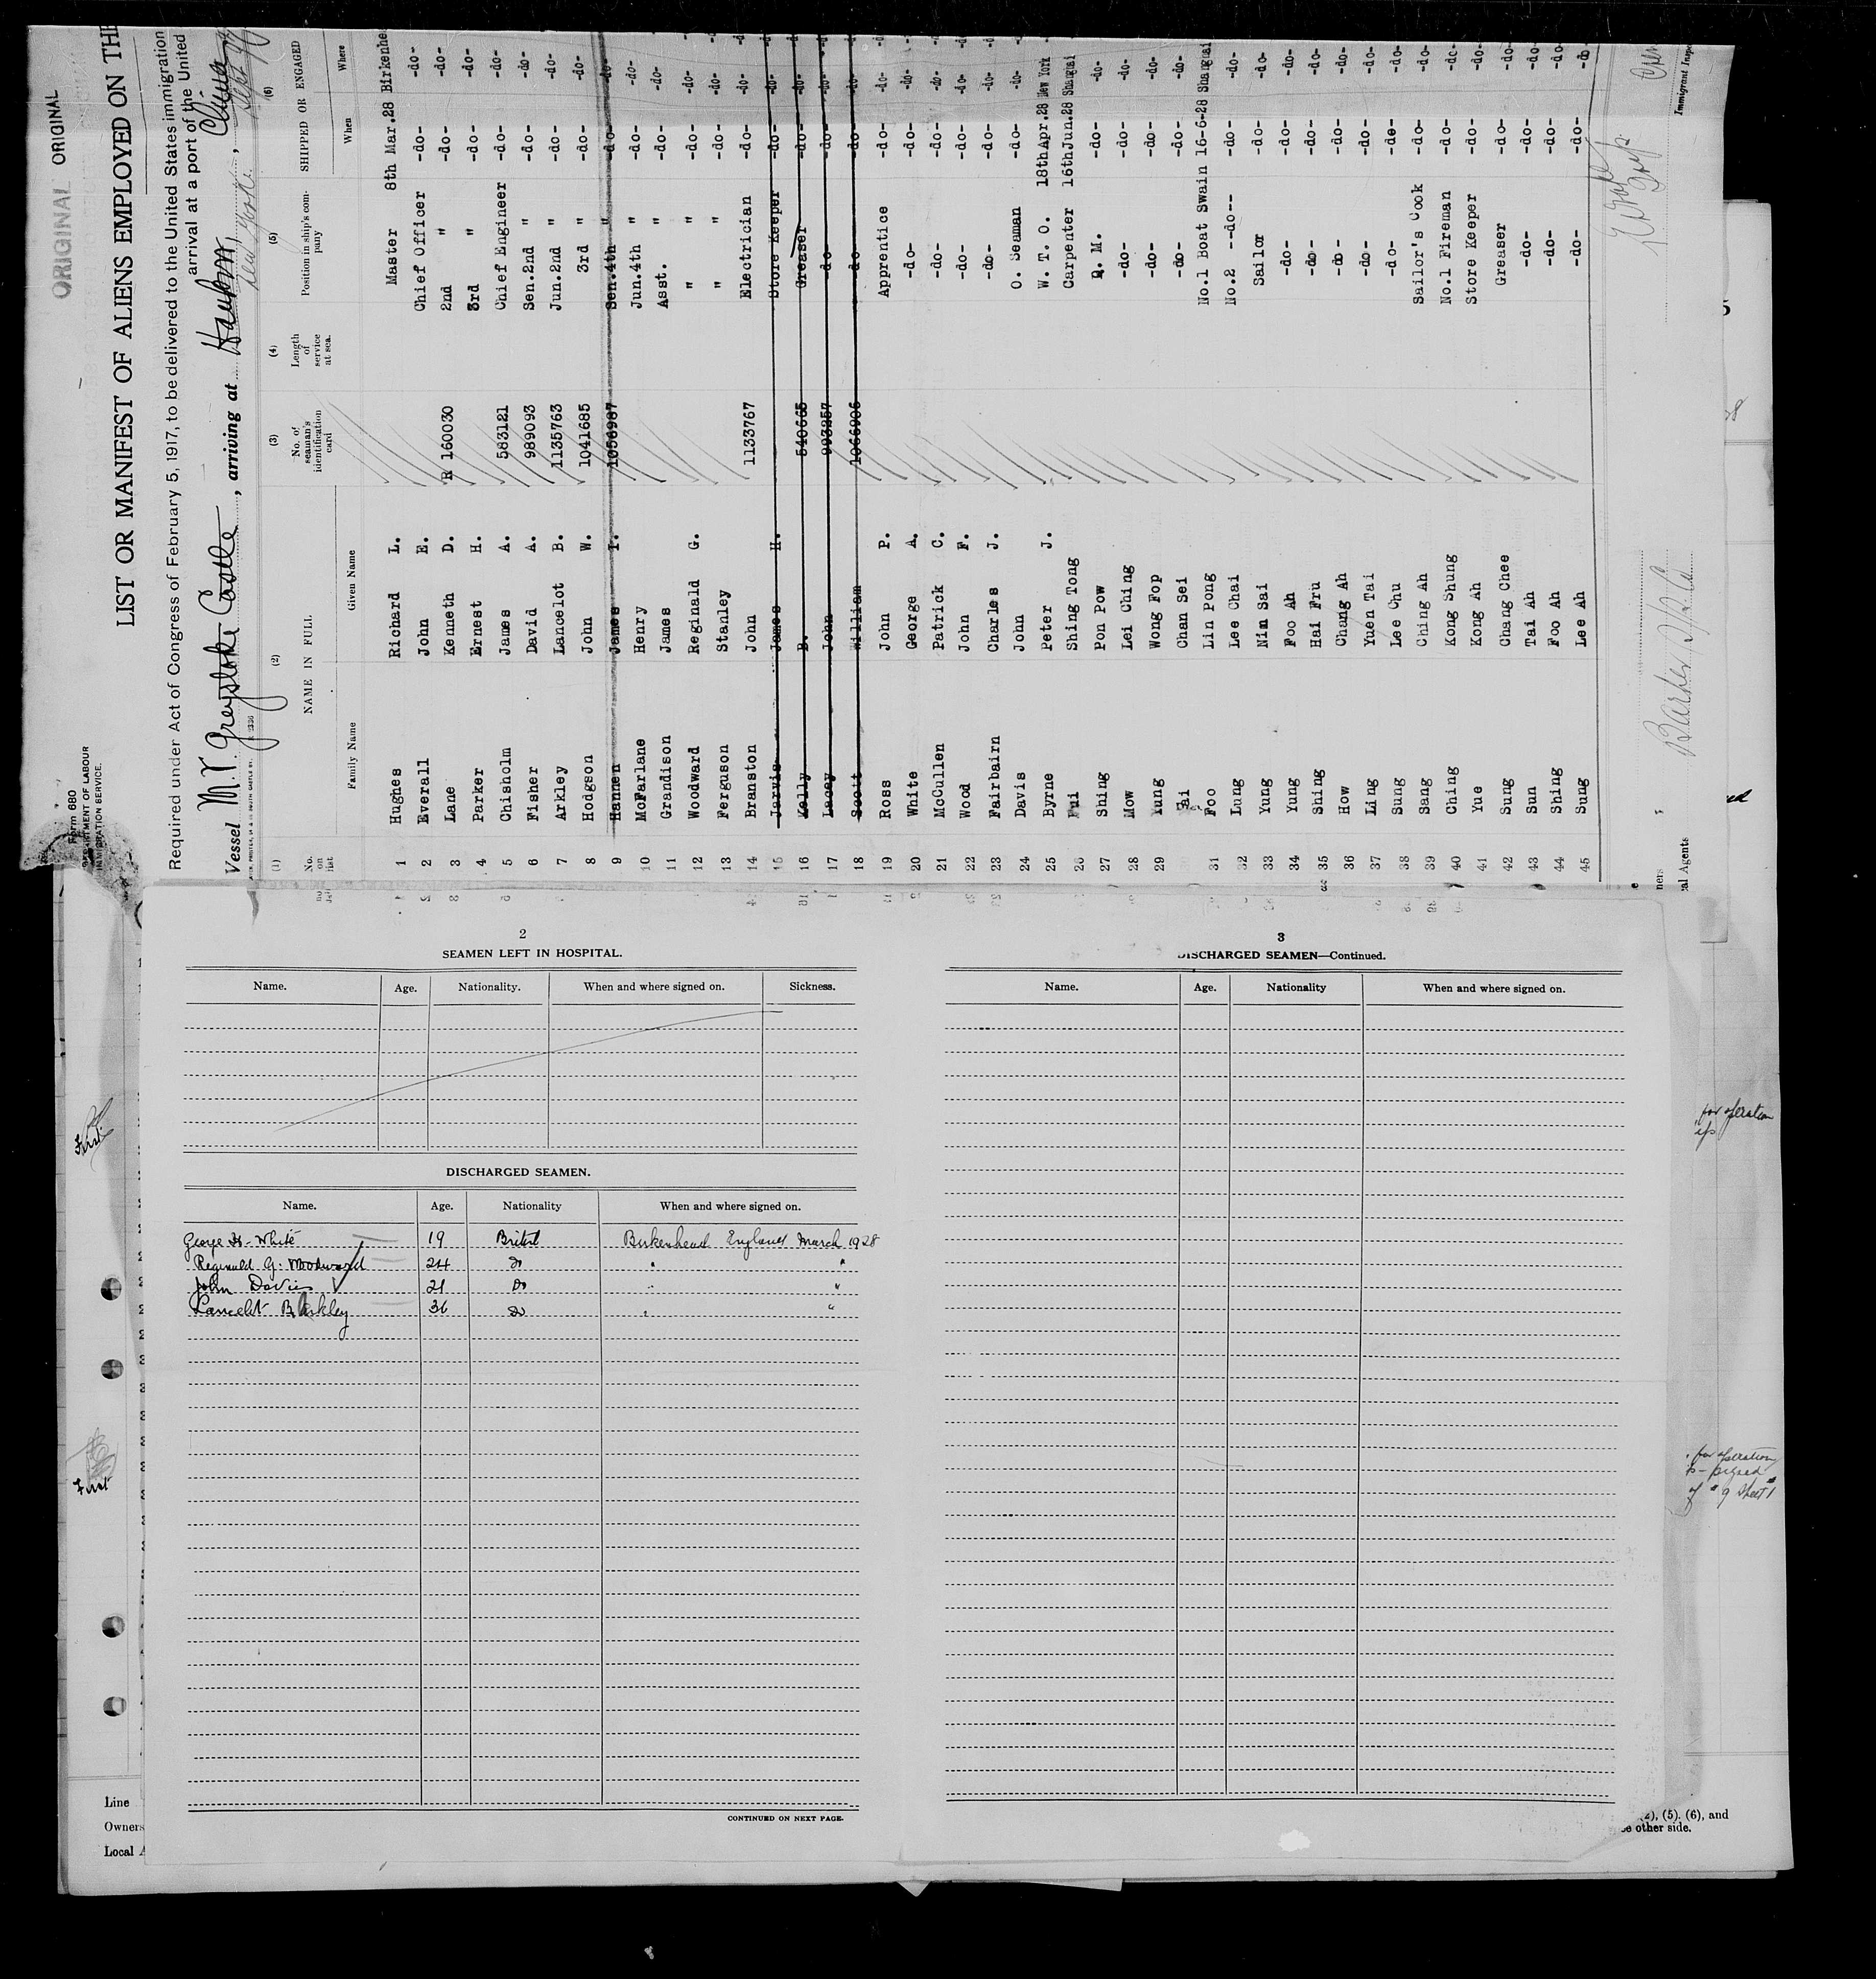 ORIGINAL ORIGINAL
Form 680
DEPARTMENT OF LABOUR
IMMIGRATION SERVICE.
LIST OR MANIFEST OF ALIENS EMPLOYED ON THE
Required under Act of Congress of February 5, 1917, to be delivered to the United States immigration
arrival at a port of the United
Vessel M.V. Greystoke Castle, arriving at New York,
(1) (2) (3) (4) (5) (6)
No. on list NAME IN FULL No. of seaman's identification card Length of service at sea. Position in ship's company SHIPPED OR ENGAGED
Family Name Given Name When Where
1 Hughes Richard L. Master 8th Mar.28 Birkenhe
2 Everall John E. Chief Officer -do- -do-
3 Lane Kenneth D. R 160030 2nd " -do- -do-
4 Parker Ernest H. 3rd " -do- -do-
5 Chisholm James A. 583121 Chief Engineer -do- -do-
6 Fisher David A. 989093 Sen.2nd " -do- -do-
7 Arkley Lancelot B. 1135763 Jun.2nd " -do- -do-
8 Hodgson John W. 1041685 3rd " -do- -do-
9 Hannen James T. 1056987 Sen.4th " -do- -do-
10 McFarlane Henry Jun.4th " -do- -do-
11 Grandison James Asst. " -do- -do-
12 Woodward Reginald G. " " -do- -do-
13 Ferguson Stanley " " -do- -do-
14 Branston John 1133767 Electrician -do- -do-
15 Jarvis James H. Store Keeper -do- -do-
16 Kelly B. 540665 Greaser -do- -do-
17 Lacey John 993257 -do- -do- -do-
18 Scott William 1066906 -do- -do- -do-
19 Ross John P. Apprentice -do- -do-
20 White George A. -do- -do- -do-
21 McCullen Patrick C. -do- -do- -do-
22 Wood John F. -do- -do- -do-
23 Fairbairn Charles J. -do- -do- -do-
24 Davis John O. Seaman -do- -do-
25 Byrne Peter J. W. T. O. 18thApr.28 New York
26 Fui Shing Tong Carpenter 16thJun.28 Shangai
27 Shing Pon Pow Q. M. -do- -do-
28 Mow Lei Ching -do- -do- -do-
29 Kung Wong Fop -do- -do- -do-
Chan Sei -do- -do- -do-
31 Foo Lin Pong No.1 Boat Swain 16-6-28 Shangai
32 Lung Lee Chai No.2 --do-- -do- -do-
33 Yung Nim Sai Sailor -do- -do-
34 Yung Foo Ah -do- -do- -do-
35 Shing Hai Fru -do- -do- -do-
36 How Chang Ah -do- -do- -do-
37 Ling Yuen Tai -do- -do- -do-
38 Sung Lee Chu -do- -do- -do-
39 Sang Ching Ah Sailor's Cook -do- -do-
40 Ching Kong Shung No.1 Fireman -do- -do-
41 Yue Kong Ah Store Keeper -do- -do-
42 Sung Chang Chee Greaser -do- -do-
43 Sun Tai Ah -do- -do- -do-
44 Shing Foo Ah -do- -do- -do-
45 Sung Lee Ah -do- -do- -do-
ners
al Agents
Immigrant Inspe
2
SEAMEN LEFT IN HOSPITAL.
Name. Age. Nationality. When and where signed on. Sickness.
DISCHARGED SEAMEN.
Name. Age. Nationality When and where signed on.
George H. White 19 British Birkenhead England March 1928
Reginald G. Woodward 24 Do " "
John Davies 21 Do " "
Lancelot B. Arkley 36 Do " "
CONTINUED ON NEXT PAGE.
3
DISCHARGED SEAMEN—Continued.
Name. Age. Nationality When and where signed on.
First
First
for operation
for operation
of #9 Sheet 1
Line
Owners
Local A
(2), (5). (6), and
e other side.